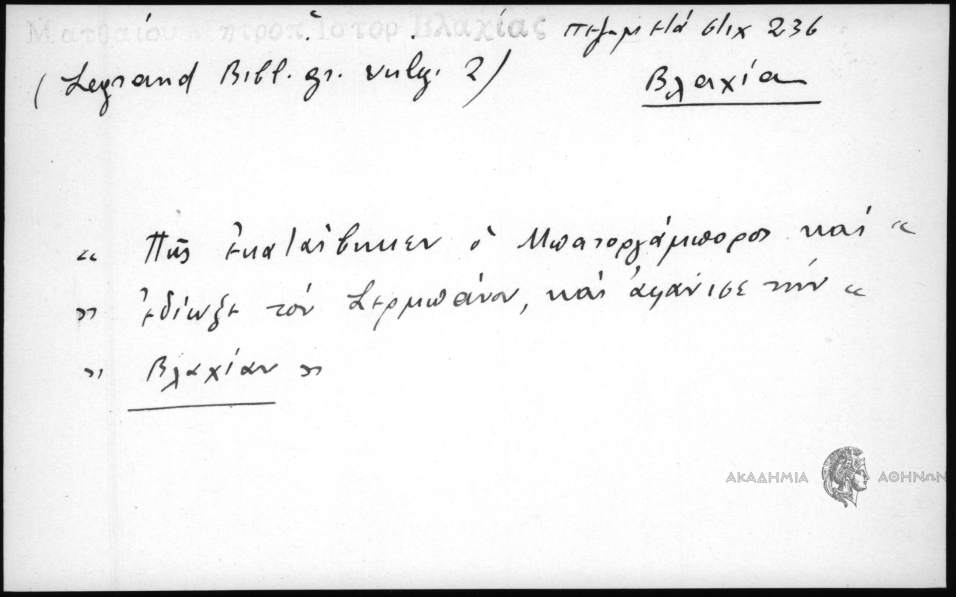 Ματθαίου Μητροπ. Ἱστορ Βλαχίας πεζογρικά στιχ 236
(Legrand Bibl. gr. vulg. 2) Βλαχία
“ Πῶς ἐκατέβηκεν ὁ Μπατοργάμπορος καὶ “
” ἐδίωξε τὸν Σερμπάνον, καὶ ἀφάνισε τὴν “
” Βλαχίαν ”
ΑΚΑΔΗΜΙΑ ΑΘΗΝΩΝ